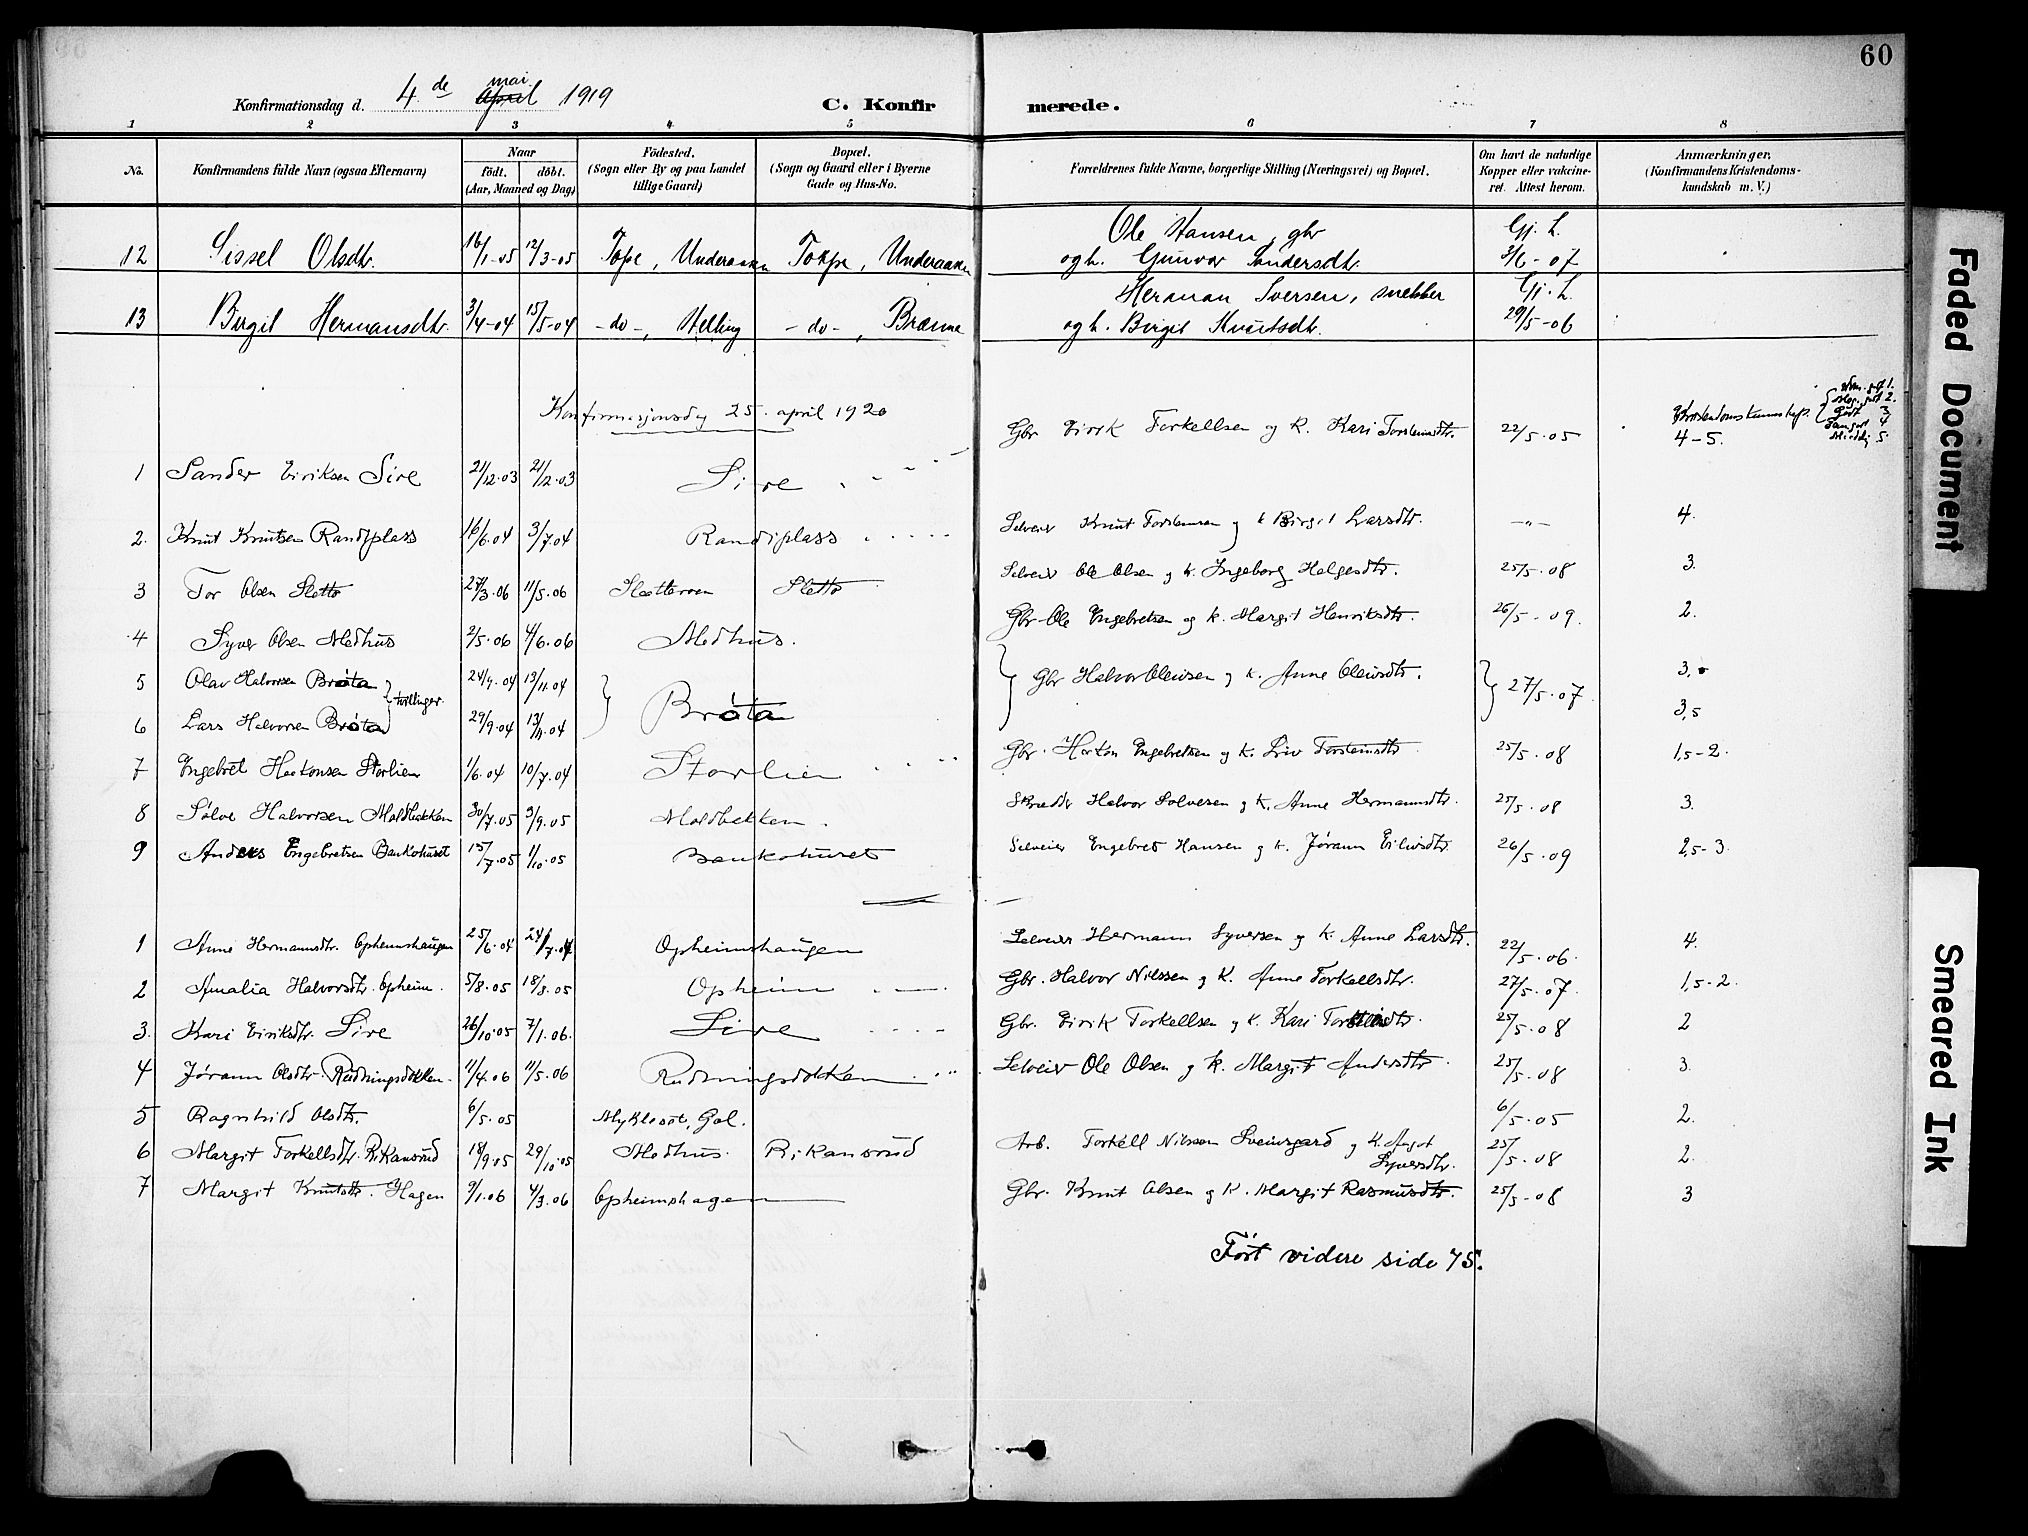 60
Konfirmationsdag d. 4de April mai 1919 C. Konfirmerede.
1 2 3 4 5 6 7 8
No. Konfirmandens fulde Navn (ogsaa Efternavn) Naar født. døbt. (Aar, Maaned og Dag) Fødested. (Sogn eller By og paa Landet tillige Gaard) Bopæl. (Sogn og Gaard eller i Byerne Gade og Hus-No. Forældrenes fulde Navne, borgerlige Stilling (Næringsvei) og Bopæl. Om havt de naturlige Kopper eller vakcineret. Attest herom. Anmærkninger. (Konfirmandens Kristendomskundskab m. V.)
Ole Hansen, gbr Gj. L.
12 Sissel Olsdtr. 16/1-05 12/3-05 Torpe, Underaaen Torpe, Underaaen og h. Gunvor Sandersdtr. 3/6-07
Herman Iversen, snekker Gj. L.
13 Birgit Hermansdtr. 3/4-04 15/5-04 -do-, Helling -do-, Brenne og h. Birgit Knutsdtr. 29/5-06
Konfirmasjonsdag 25. april 1920
Kristendomskunnskap. Godt 3
1 Sander Eiriksen Sire 21/12.03 21/12.03 Sire Gbr Eirik Torkellsen og K. Kari Torsteinsdtr. 22/5.05 4-5.
2. Knut Knutsen Randiplass 16/6.04 3/7.04 Randiplass Selveier Knut Torsteinsen og k Birgit Larsdtr. -"- 4.
3 Tor Olsen Sletto 27/3.06 11/5.06 Slettemoen Sletto Selveier Ole Olsen og k. Ingeborg Helgesdtr. 25/5.08 3.
4 Syver Olsen Medhus 2/5.06 4/6.06 Medhus. Gbr Ole Engebretsen og k. Margit Henriksdtr. 26/5-09. 2.
5 Olav Halvorsen Brøta } tvillinger 24/9.04 13/11.04 } Brøta } Gbr Halvor Oleivsen og k. Anne Oleivsdtr. } 27/5.07 3,
6 Lars Halvorsen Brøta 29/9.04 13/11.04 3,5
7 Engebret Haakonsen Storlien 1/6.04 10/7.04 Storlien Gbr. Haakon Engebretsen og k. Liv Torsteinsdtr 25/5.08 1,5-2.
8 Sølve Halvorsen Moldbakken 30/7.05 3/9.05 Moldbekken. Skredder Halvor Solvesen og k. Anne Hermannsdtr. 25/5.08 3.
9 Anders Engebretsen Bankohuset 15/7.05 1/10.05 Bankohuset Selveier Engebret Hansen og k. Jørann Eileivsdtr. 26/5.09 2,5-3.
1 Anne Hermannsdtr. Opheimshaugen 25/6.04 24/7.04 Opheimshaugen Selveier Hermann Syversen og k. Anne Larsdtr. 22/5.06. 4.
2 Amalia Halvorsdtr. Opheim. 5/8.05 18/8.05 Opheim Gbr. Halvor Nilssen og k. Anne Torkellsdtr. 27/5.07. 1,5-2.
3. Kari Eiriksdtr. Sire 26/10.05 7/1.06. Sire Gbr. Eirik Torkellsen og k. Kari Torsteinsdtr. 25/5.08 2
4 Jørann Olsdtr. Rudningsdokken. 11/4.06 11/5.06 Rudningsdokken Selveier Ole Olsen og k. Margit Andersdtr. 25/5.08 3.
5 Ragnhild Olsdtr. 6/5.05 Myklestøl, Gol. 6/5.05 2.
6 Margit Torkellsdtr. Rikansrud 18/9.05 29/10.05 Medhus. Rikansrud Arb. Torkell Nilssen Sveinsgard og k. Angot Syversdtr. 25/5.08 2.
7 Margit Knutsdtr. Hagen 9/1.06 4/3.06 Opheimshagen Gbr. Knut Olsen og k. Margit Rasmusdtr. 25/5-08 3
Ført videre side 75.
Faded Document
Smeared Ink